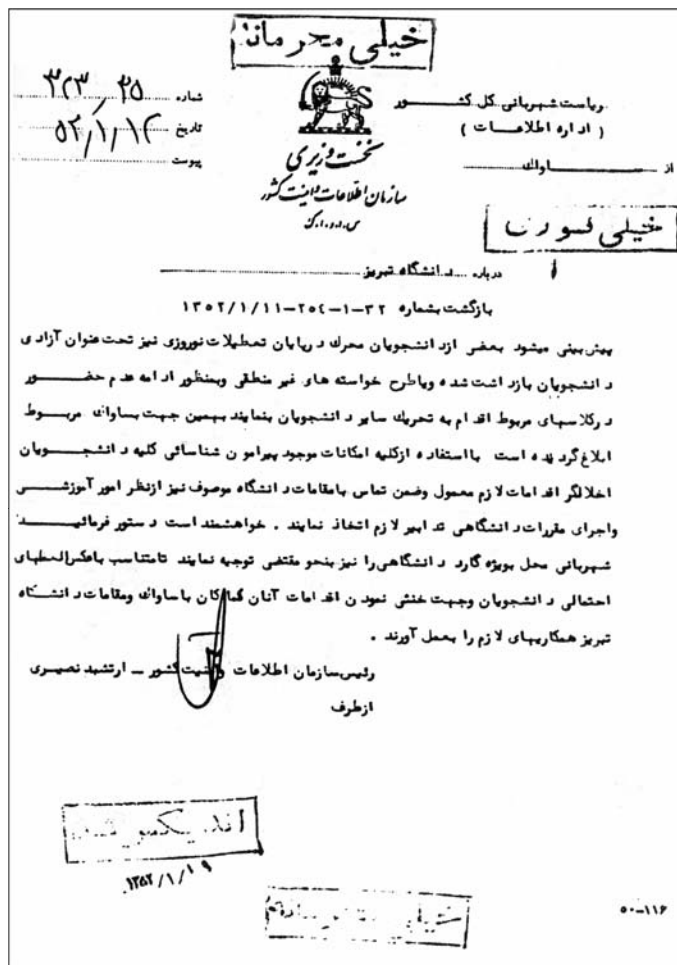 خیلی محرمانه
ریاست شهربانی کل کشور
( اداره اطلاعات )
از ساواک
شماره ۳۲۳
تاریخ ۵۲/۱/۱۲
پیوست
نخست وزیری
سازمان اطلاعات و امنیت کشور
س.ا.و.ا.ک
خیلی فوری
درباره دانشگاه تبریز
بازگشت بشماره ۳۲-۱-۲۵۴-۱۳۵۲/۱/۱۱
پیش بینی میشود بعضی از دانشجویان محرک در پایان تعطیلات نوروزی نیز تحت عنوان آزادی
دانشجویان بازداشت شده و یا طرح خواسته های غیر منطقی و بمنظور ادامه عدم حضور
در کلاسهای مربوط اقدام به تحریک سایر دانشجویان بنمایند بهمین جهت بساواک مربوط
ابلاغ گردیده است با استفاده از کلیه امکانات موجود پیرامون شناسائی کلیه دانشجویان
اخلالگر اقدامات لازم معمول و ضمن تماس با مقامات دانشگاه موصوف نیز از نظر امور آموزشی
و اجرای مقررات دانشگاهی تدابیر لازم اتخاذ نمایند . خواهشمند است دستور فرمائید
شهربانی محل بویژه گارد دانشگاهی را نیز بنحو مقتضی توجیه نمایند تا متناسب با عکس العملهای
احتمالی دانشجویان و جهت خنثی نمودن اقدامات آنان کماکان با ساواک و مقامات دانشگاه
تبریز همکاریهای لازم را بعمل آورند .
رئیس سازمان اطلاعات و امنیت کشور ـ ارتشبد نصیری
از طرف
اندیکس شد
۱۳۵۲/۱/۱۹
خیلی
۵۰-۱۱۶